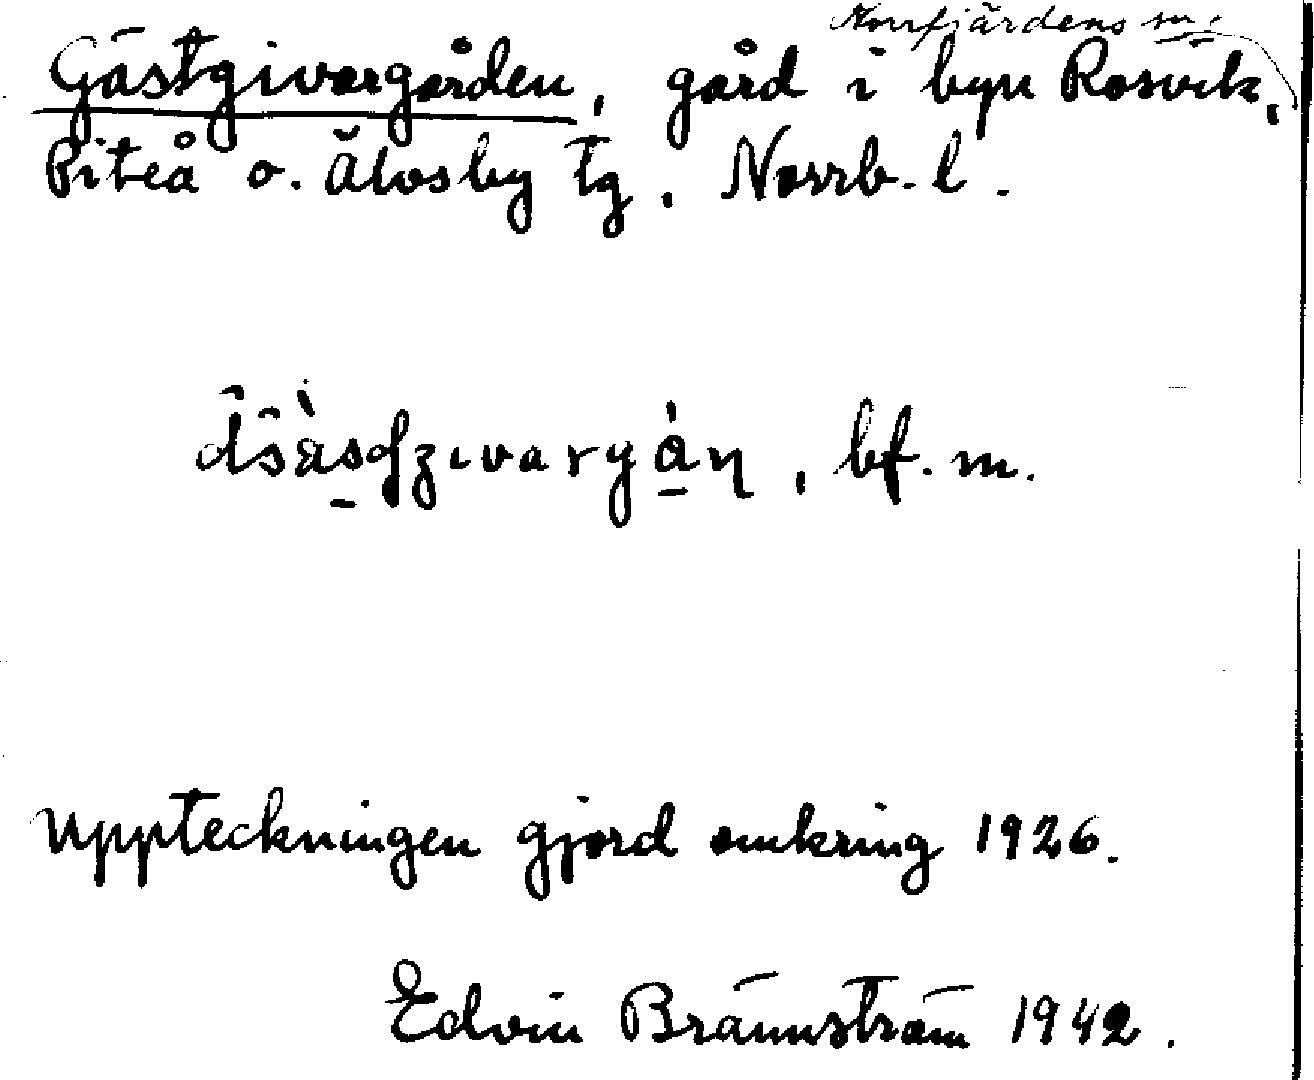 Norrfjärdens sn.
Gästgivargården, gård i byn Rosvik,
Piteå o. Älvsby tg. Norrb. l.
, bf. m.
Uppteckningen gjord omkring 1926.
Edvin Brännström 1942.